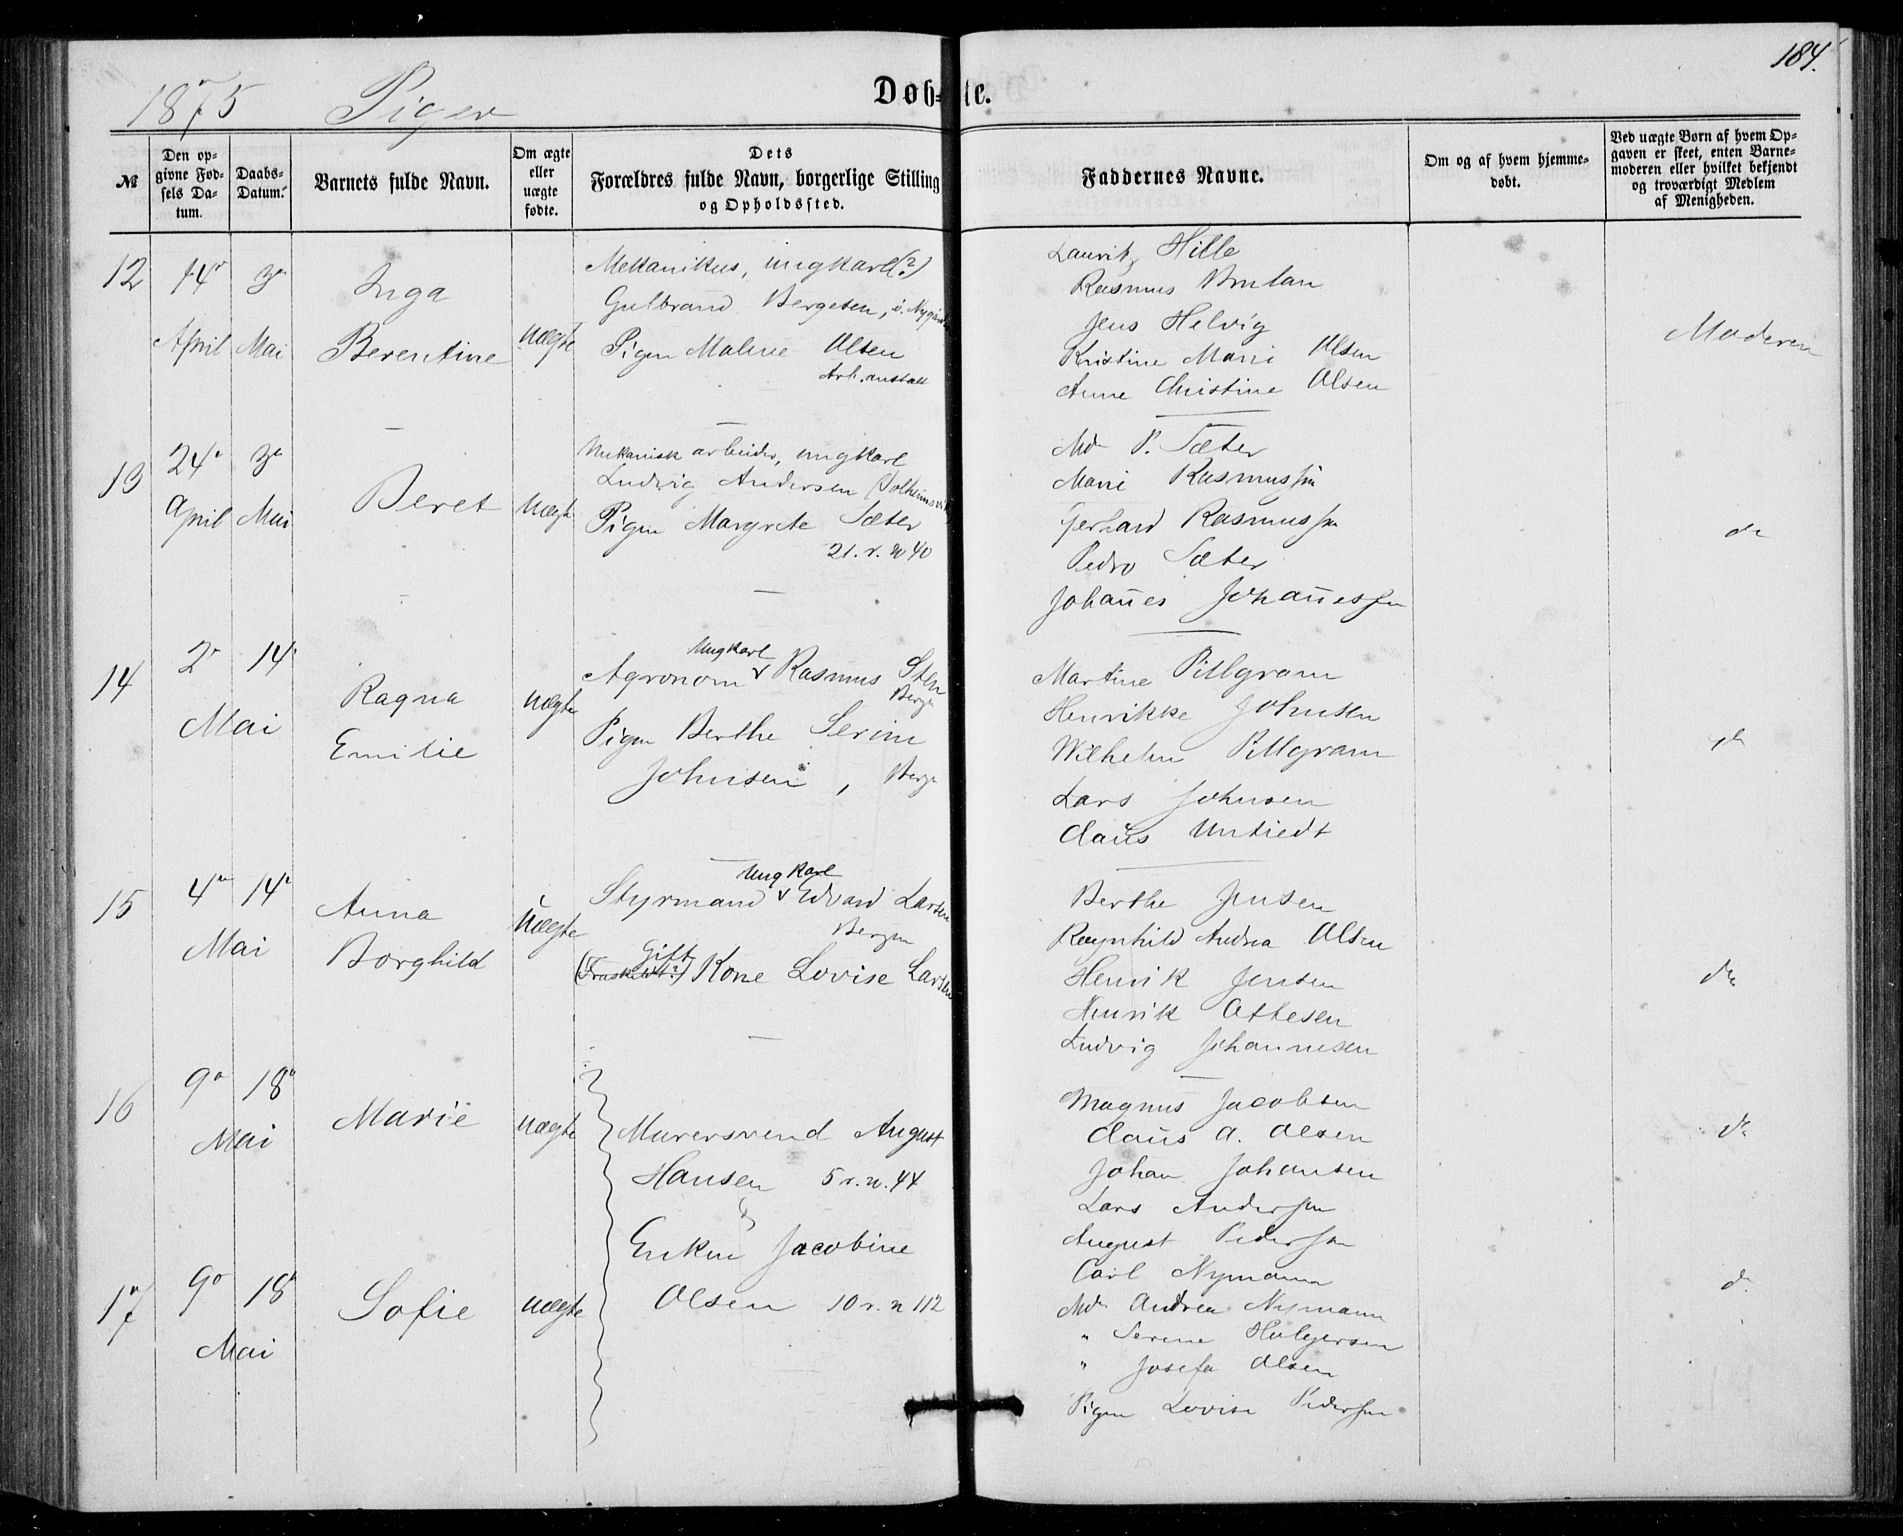 184.
1875 Piger
Døb=te.
№
Den op-
givne Fød-
sels Da-
tum.
Daabs-
Datum.
Barnets fulde Navn.
Om ægte
eller
uægte
fødte.
Dets
Forældres fulde Navn, borgerlige Stilling
og Opholdssted.
Faddernes Navne.
Om og af hvem hjemme-
døbt.
Ved uægte Børn af hvem Op-
gaven er skeet, enten Barne-
moderen eller hvilket bekjendt
og troværdigt Medlem
af Menigheden.
12
14de
April
3de
Mai
Inga
Berentine
uægte
Mekanikus, ungkarl(?)
Gulbrand Bergesen, i. Nygård
Pigen Malene Olsen
Arb. anstalt
Lauritz Hille
Rasmus
Jens Helvig
Kristine Marie Olsen
Anne Christine Olsen
Moderen
13
24de
April
3de
Mai
Beret
uægte
Mekanisk arbeider, ungkarl
Ludvig Andersen (Solheimsvig)
Pigen Margrete Sæter
21. r. n 40
Md. P. Sæter
Marie Rasmussen
Gerhard Rasmussen
Pedro Sæter
Johan̄es Johan̄essen
do
14
2den
14de
Mai
Ragna
Emilie
uægte
Ungkarl
Agronom v Rasmus Sten
Bergen
Pigen Berthe Serine
Johnsen, Bergen
Martine Pillgram
Henrikke Johnsen
Wilhelm Pillgram
Lars Johnsen
Claus Untiedt
do
15
4de
14de
Mai
Anna
Borghild
Uægte
Ungkarl
Styrmand v Edvard Larsen
Bergen
Gift
(Fraskilt?) Kone Lovise Larsen
Berthe Jensen
Ragnhild Andrea Olsen
Henrik Jensen
Henrik Ottesen
Ludvig Johannesen
do
16
9de
18de
Mai
Marie
uægte
Murersvend August
Hansen 5 r. n. 44
&
Enken Jacobine
Olsen 10 r. n 112
Magnus Jacobsen
Claus A. Olsen
Johan Johansen
Lars Andersen
August Pedersen
do
17
9de
18de
Mai
Sofie
uægte
Carl Nymann
Md. Andrea Nymann
" Serine Holgersen
" Josefa Olsen
Pigen Lovise Pedersen
do